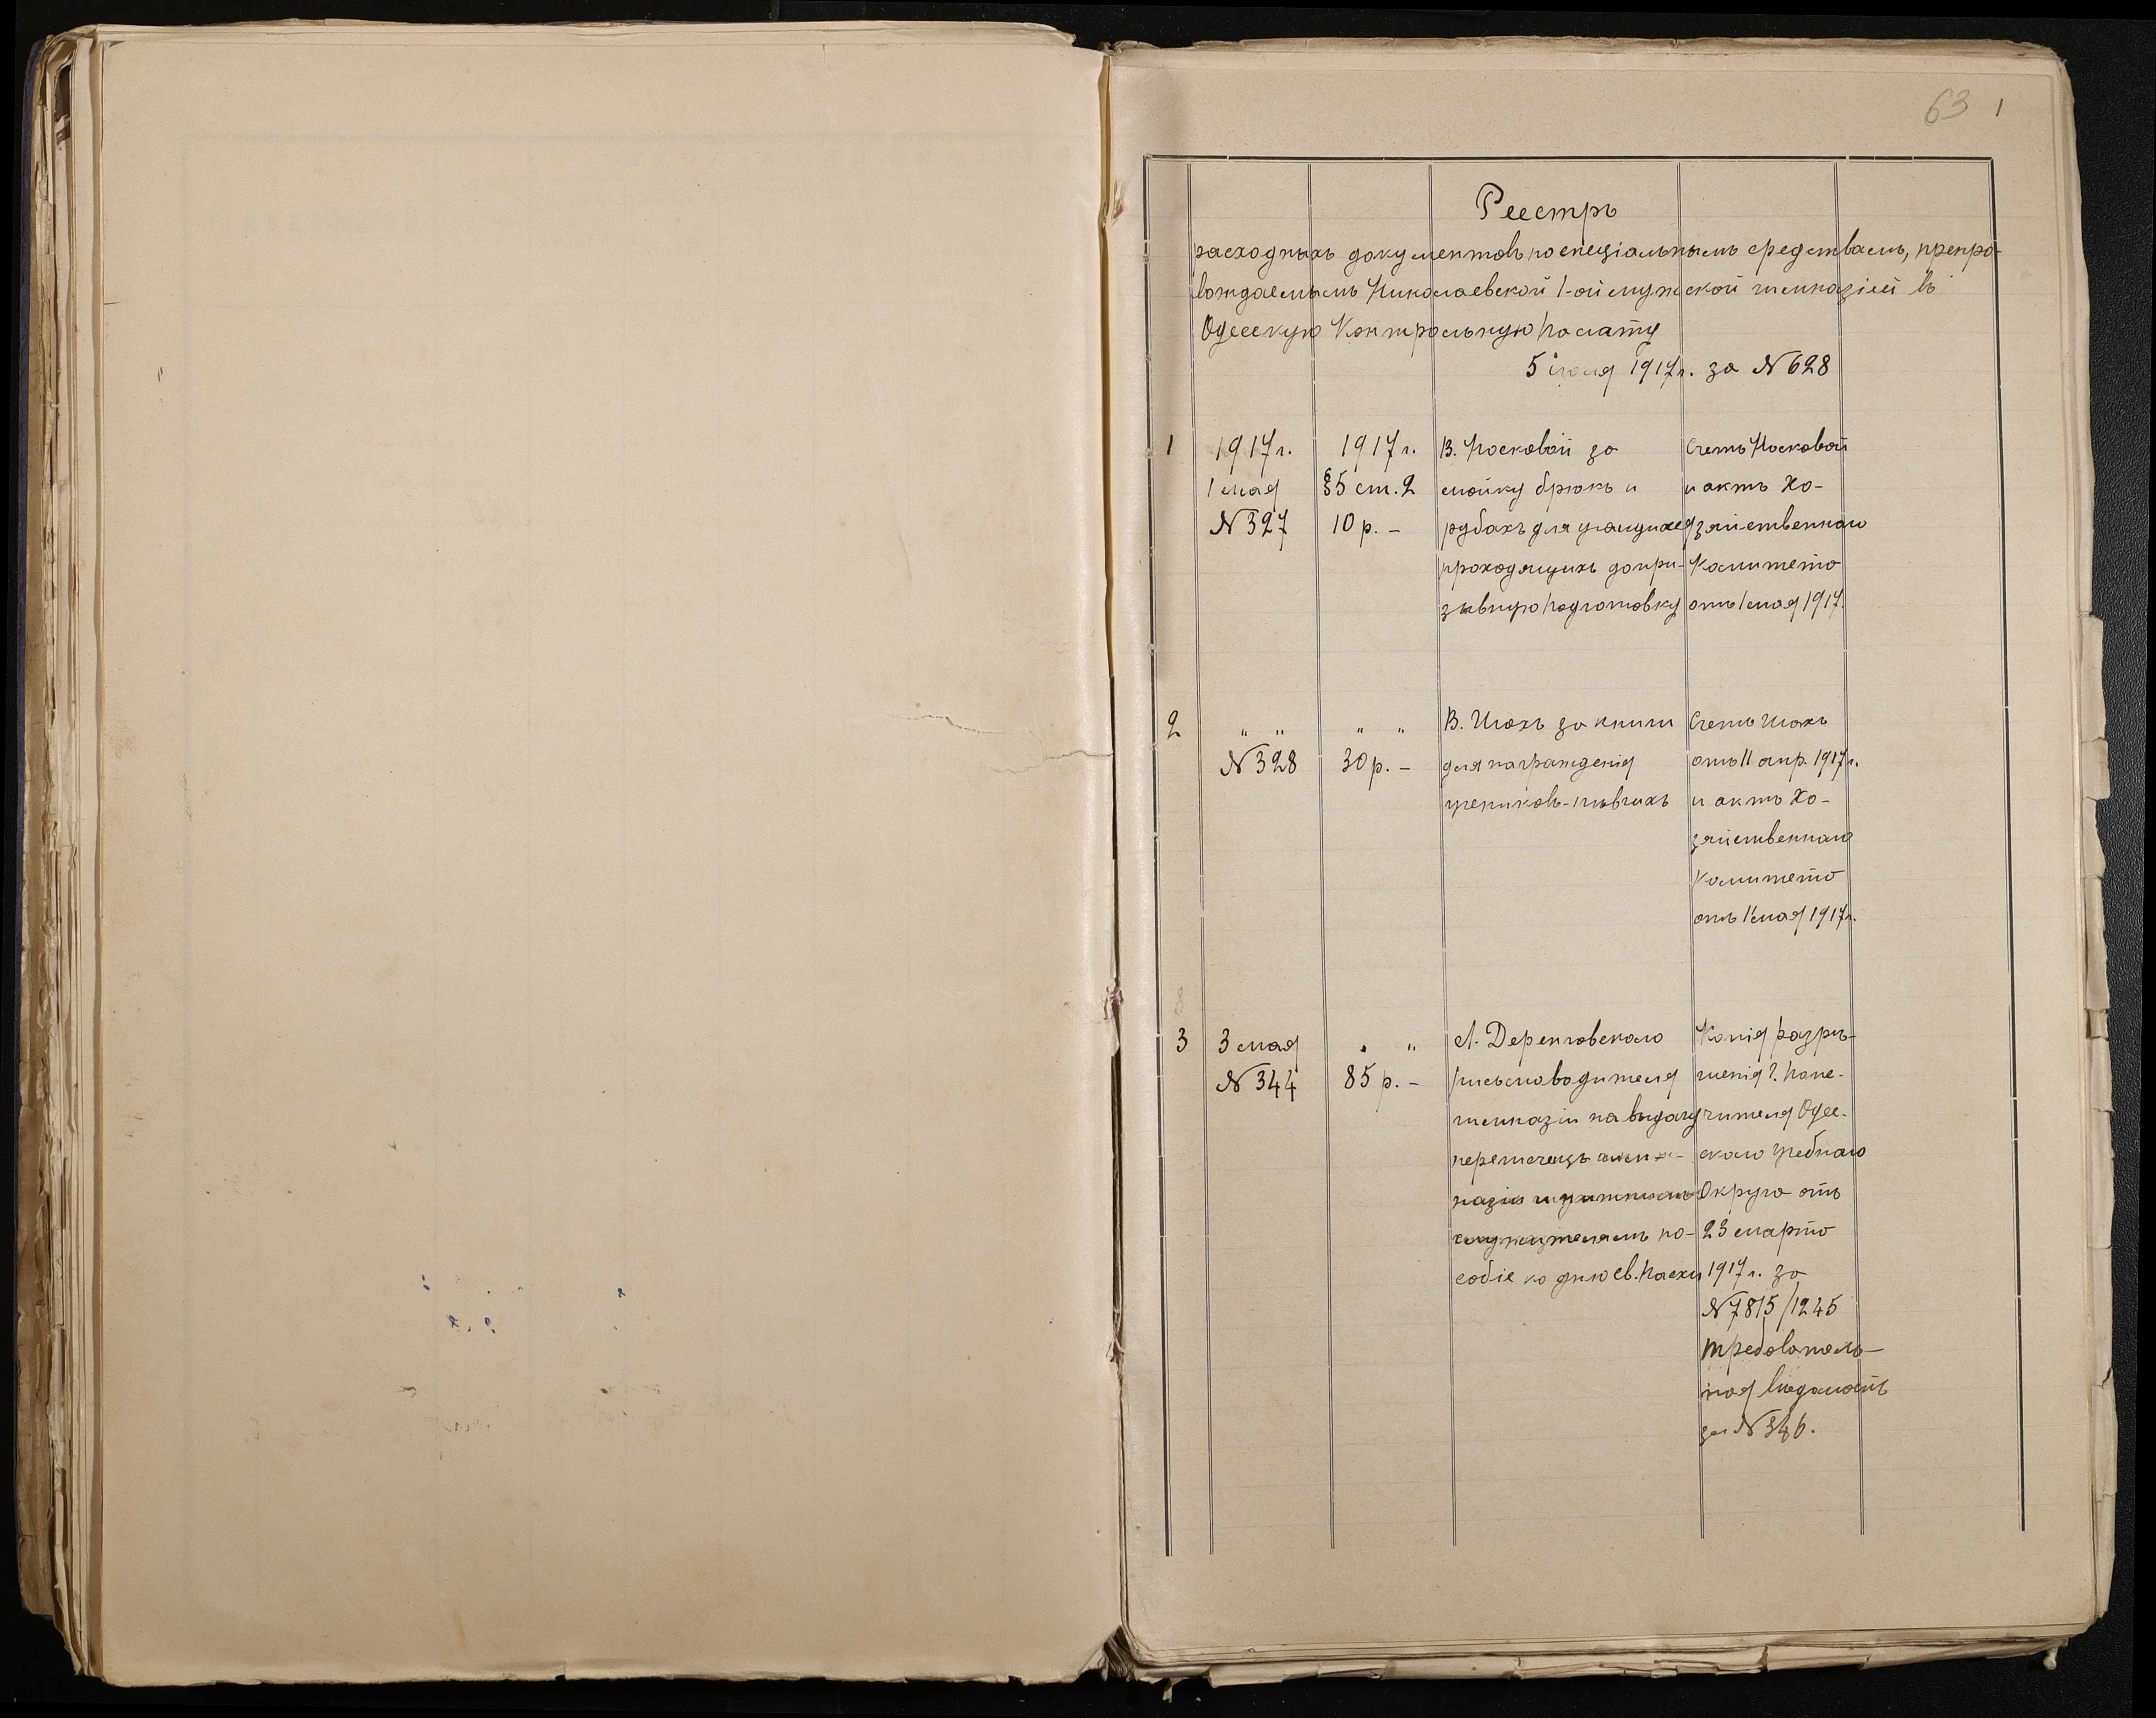 63 1
Реестръ
расходныхъ документовъ по спеціальнымъ средствамъ, препро-
вождаемымъ Николаевской 1-ой мужской гимназіей въ
Одесскую Контрольную Палату
5 іюля 1917 г. за № 628
1
1917 г.
1 мая
№ 327
1917 г.
§ 5 ст. 2
10 р. –
В. Носковой за
мойку брюкъ и
рубахъ для учащихся
проходящихъ допри-
зывную подготовку
Счетъ Носковой
и актъ Хо-
зяйственнаго
Комитета
отъ 1 мая 1917.
2
" "
№ 328
" "
30 р. –
В. за книги
для награжденія
учениковъ-пѣвчихъ
Счетъ
отъ 11 апр. 1917 г.
и актъ Хо-
зяйственнаго
Комитета
отъ 1 мая 1917 г.
3
3 мая
№ 344
" "
85 р. –
Л. Деренговскаго
письмоводителя
гимназіи на выдачу
назіи
служителямъ по-
собіе ко дню св. Пасхи
Копія разрѣ-
шенія г. Попе-
чителя Одес-
скаго Учебнаго
Округа отъ
23 марта
1917 г. за
№ 7815/1245
требователь-
ная вѣдомость
за № 346.